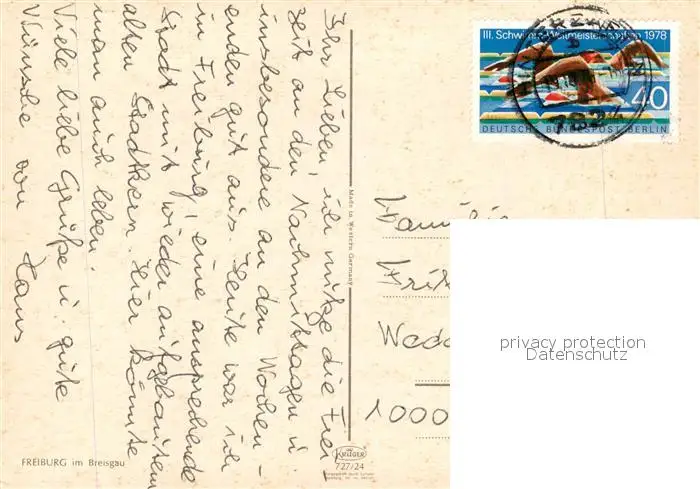 Ihr Lieben ich nutze die Frei
zeit an den Nachmittagen u.
insbesondere an den Wochen-
enden gut aus. Heute war ich
in Freiburg, eine ansprechende
Stadt mit wieder aufgebautem
alten Stadtkern. Hier könnte
man auch leben.
Viele liebe Grüße u. gute
Wünsche von Hans
FREIBURG im Breisgau
Made in Western Germany
KRÜGER
727/24
III. Schwimm-Weltmeisterschaften 1978
40
DEUTSCHE BUNDESPOST BERLIN
Familie
Frit
Wadd
1000
privacy protection
Datenschutz